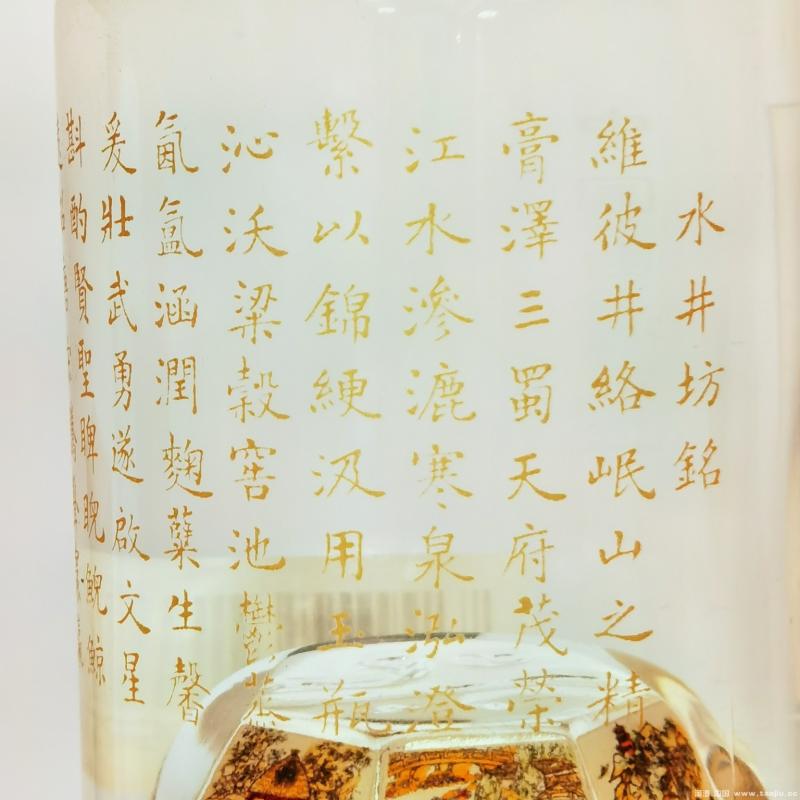 水井坊銘
維彼井絡岷山之精
膏澤三蜀天府茂荣
江水滲漉寒泉泓澄
繫以錦綆汲用玉瓶
沁沃梁穀窖池鬱蒸
氤氳涵潤麴蘖生馨
爰壯武勇遂啟文星
斟酌賢聖睥睨鯢鯨
www.tanjiu.cc